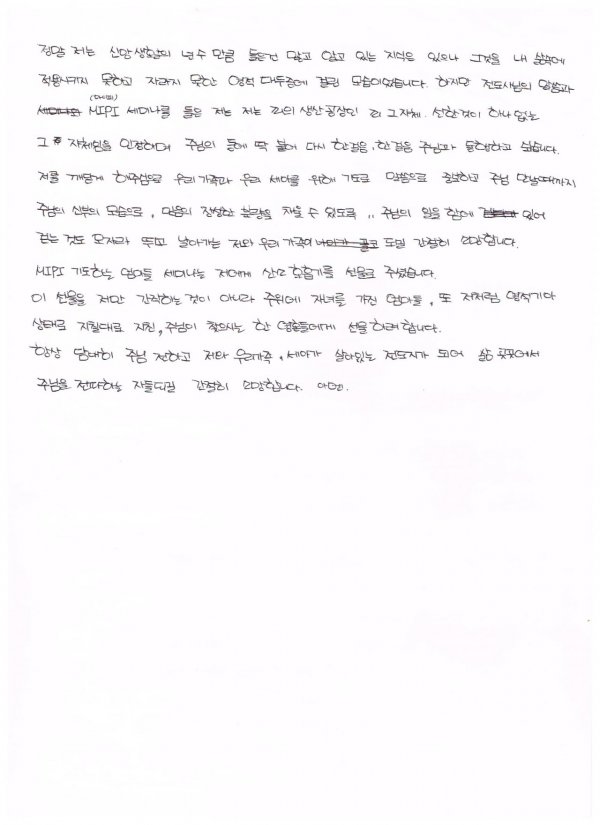 정말 저는 신앙생활의 년수 만큼 들은건 많고 알고 있는 지식은 있으나 그것을 내 삶속에
적용시키지 못하고 자라지 못한 영적 대두증에 걸린 모습이었습니다. 하지만 전도사님의 말씀과
(마이피)
MIPI 세미나를 들은 저는 저는 죄의 생산공장인 죄 그자체. 선한것이 하나 없는
그 자체임을 인정하며 주님의 등에 딱 붙어 다시 한걸음, 한걸음 주님과 동행하고 싶습니다.
저를 깨닫게 해주심으로 우리가족과 우리 세아를 위해 기도로 말씀으로 중보하고 주님 만날때까지
주님의 신부의 모습으로, 믿음의 장성한 분량을 채울 수 있도록,, 주님의 일을 함에 있어
걷는 것도 모자라 뛰고 날아가는 저와 우리 가족이 되길 간절히 소망합니다.
MIPI 기도하는 엄마들 세미나는 저에게 산소 호흡기를 선물로 주셨습니다.
이 선물을 저만 간직하는 것이 아니라 주위에 자녀를 가진 엄마들, 또 저처럼 영적기아
상태로 지칠대로 지친, 주님이 찾으시는 한 영혼들에게 선물하려 합니다.
항상 담대히 주님 전하고 저와 우리가족, 세아가 살아있는 전도지가 되어 삶 곳곳에서
주님을 전파하는 자들되길 간절히 소망합니다. 아멘.